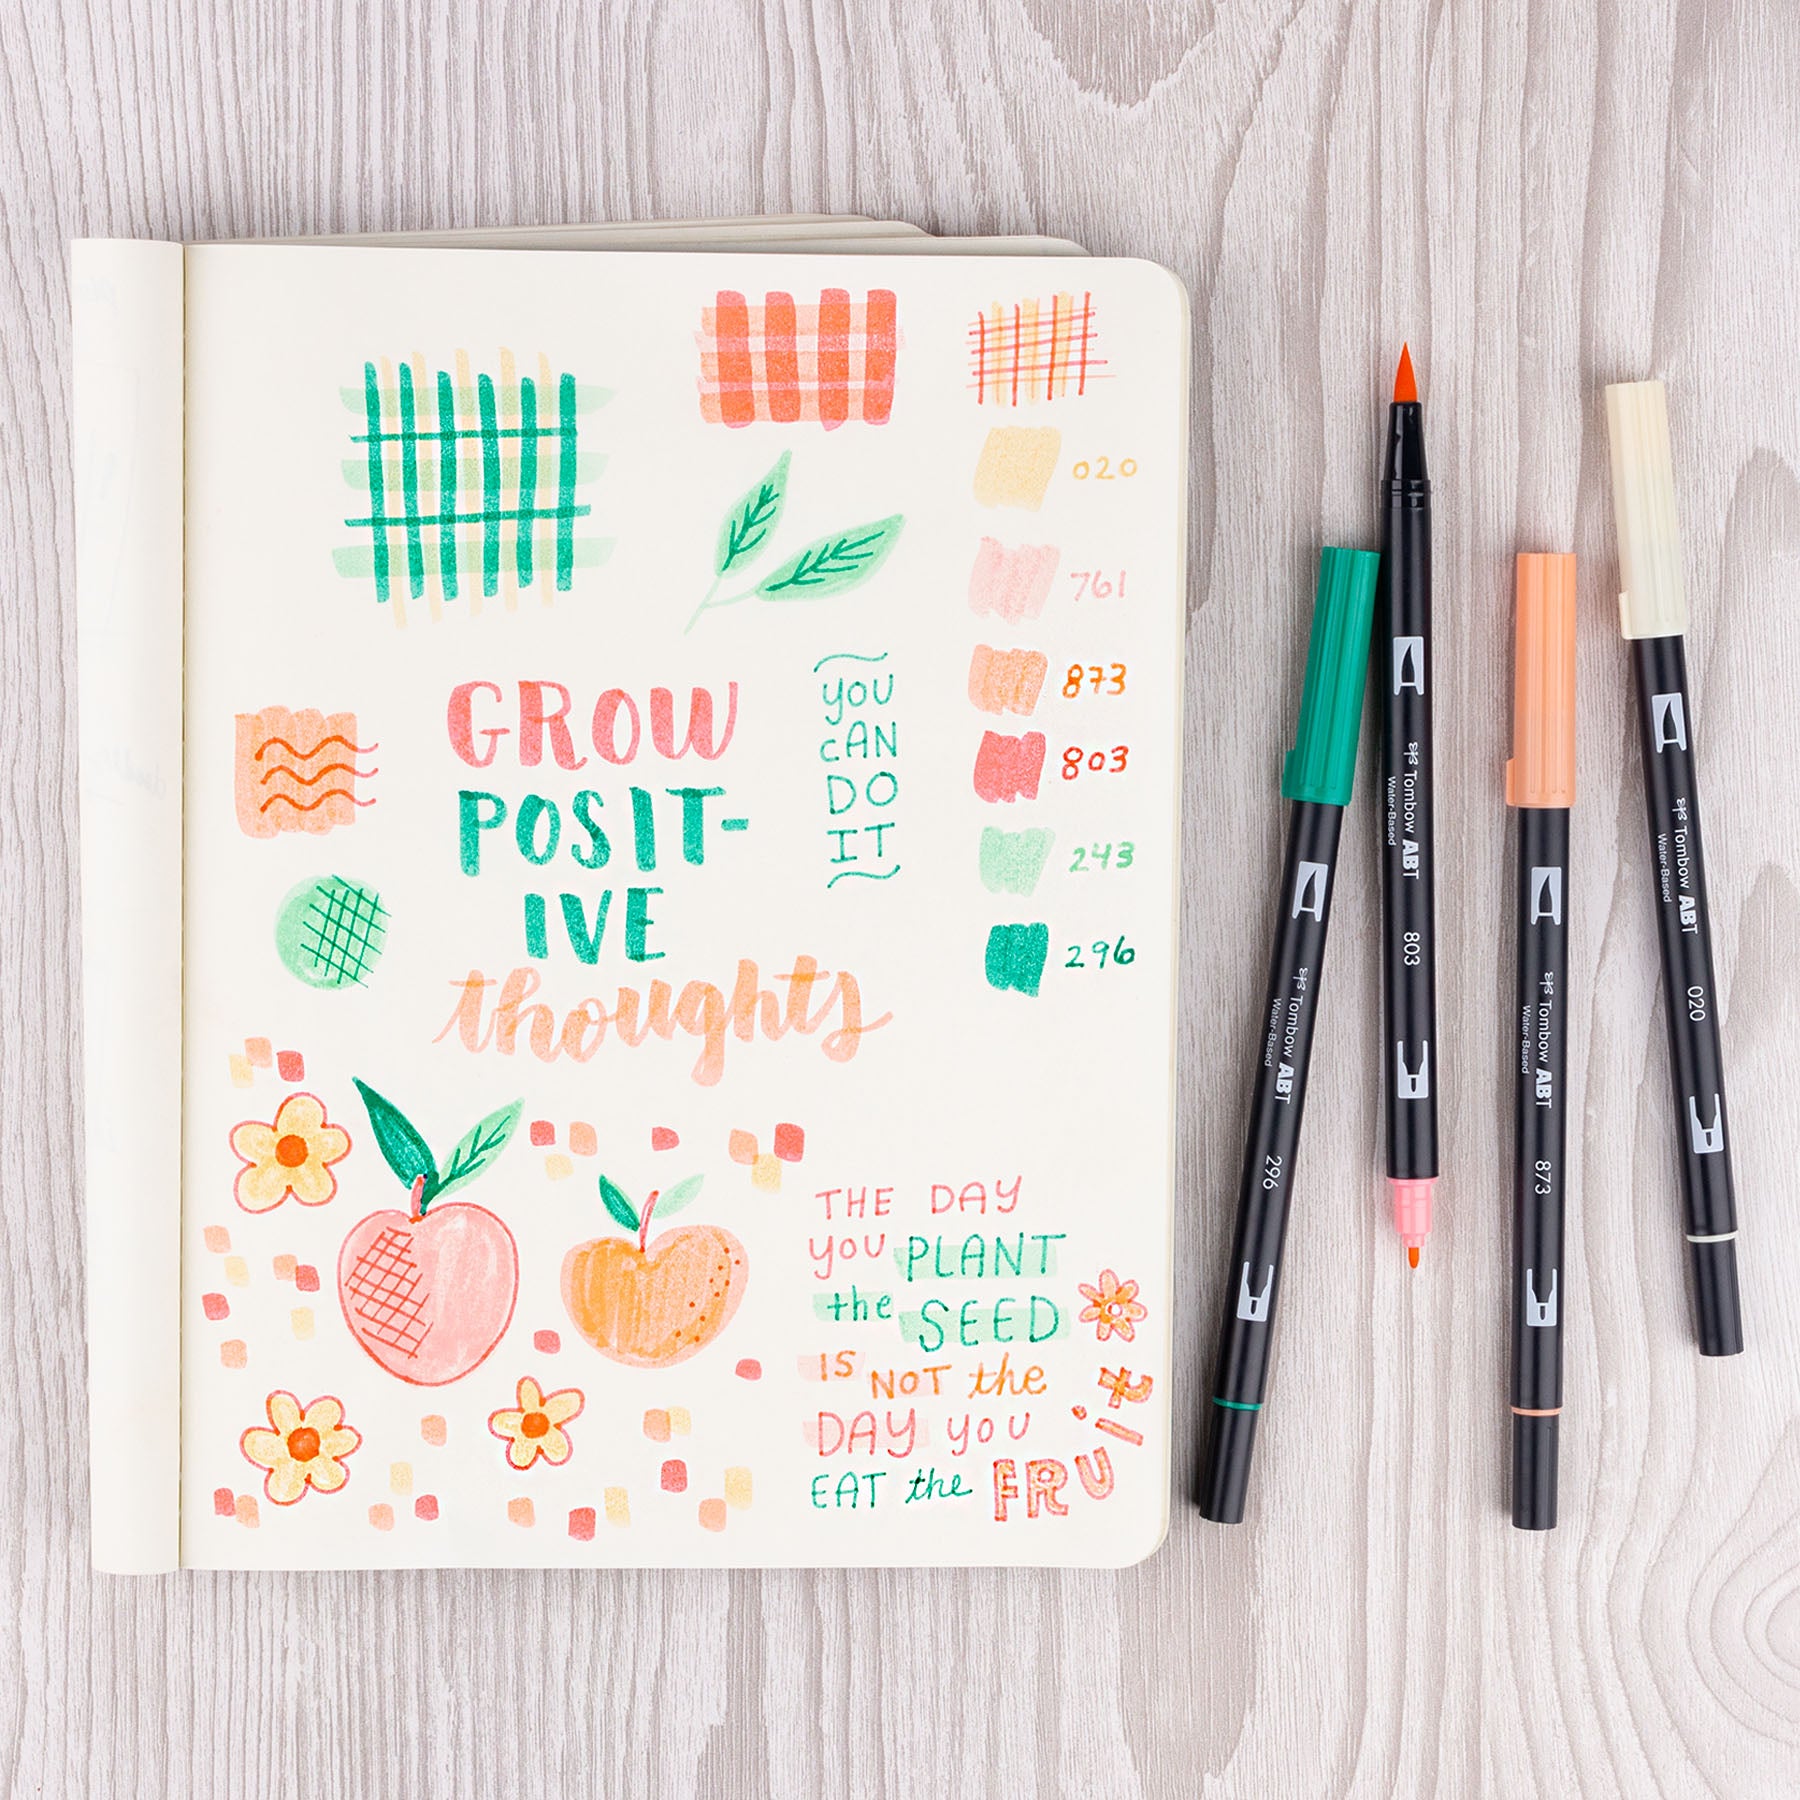 020
761
873
803
243
296
GROW
POSIT-
IVE
thoughts
YOU
CAN
DO
IT
THE DAY
YOU PLANT
the SEED
IS NOT the
DAY YOU
EAT the FRUIT
Tombow ABT
Water-Based
296
Tombow ABT
Water-Based
803
Tombow ABT
Water-Based
873
Tombow ABT
Water-Based
020